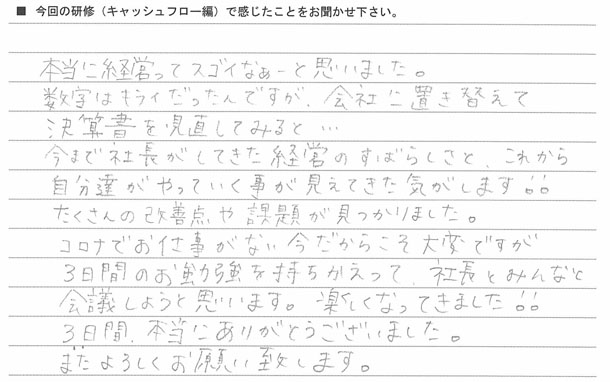 ■ 今回の研修（キャッシュフロー編）で感じたことをお聞かせ下さい。
本当に経営ってスゴイなぁーと思いました。
数字はキライだったんですが、会社に置き替えて
決算書を見直してみると…
今まで社長がしてきた経営のすばらしさと、これから
自分達がやっていく事が見えてきた気がします!!
たくさんの改善点や課題が見つかりました。
コロナでお仕事がない今だからこそ大変ですが
3日間のお勉強を持ちかえって、社長とみんなと
会議しようと思います。楽しくなってきました!!
3日間、本当にありがとうございました。
またよろしくお願い致します。